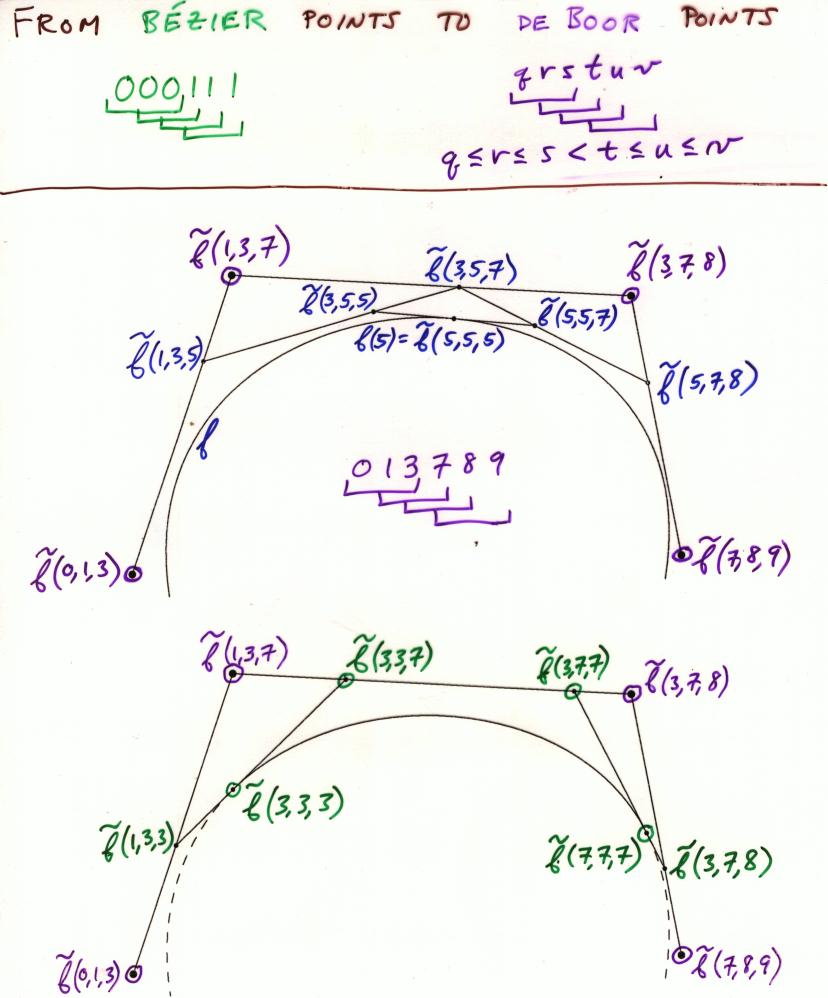 FROM BÉZIER POINTS TO DE BOOR POINTS
000111
q r s t u v
q ≤ r ≤ s < t ≤ u ≤ v
b̃(1,3,7)
b̃(3,5,7)
b̃(3,7,8)
b̃(3,5,5)
b̃(5,5,7)
b(5) = b̃(5,5,5)
b̃(1,3,5)
b̃(5,7,8)
b
0 1 3 7 8 9
b̃(0,1,3)
b̃(7,8,9)
b̃(1,3,7)
b̃(3,3,7)
b̃(3,7,7)
b̃(3,7,8)
b̃(3,3,3)
b̃(1,3,3)
b̃(7,7,7)
b̃(3,7,8)
b̃(0,1,3)
b̃(7,8,9)